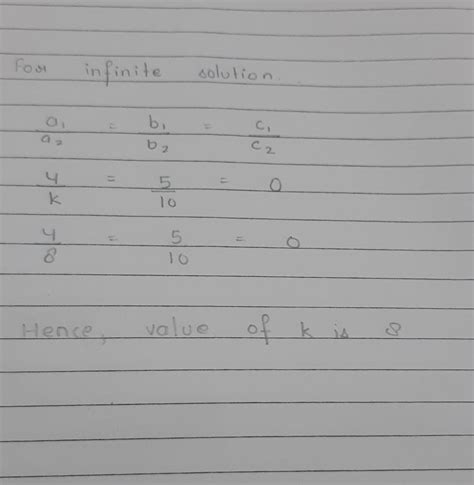 For infinite solution.
a₁/a₂ = b₁/b₂ = c₁/c₂
4/k = 5/10 = 0
4/8 = 5/10 = 0
Hence, value of k is 8